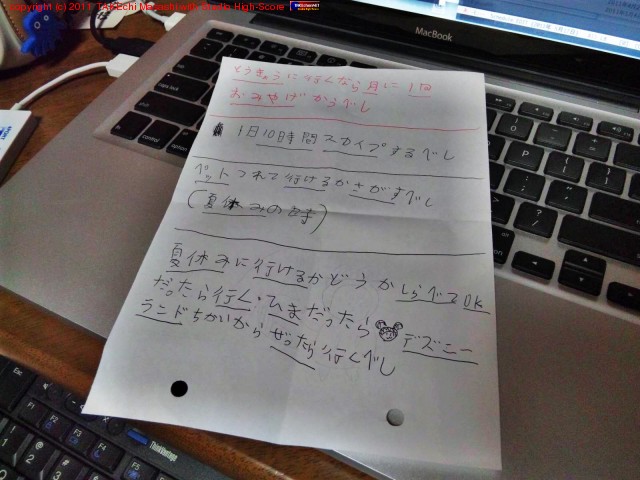 copyright (c) 2011 TAKEchi Masashi with Studio High-Score
MacBook
とうきょうに行くなら月に1回
おみやげかうべし
1日10時間スカイプするべし
ペットつれて行けるかさがすべし
(夏休みの時)
夏休みに行けるかどうかしらべてOK
だったら行く・ひまだったらデズニー
ランドちかいからぜったら行くべし
control
option
ThinkVantage